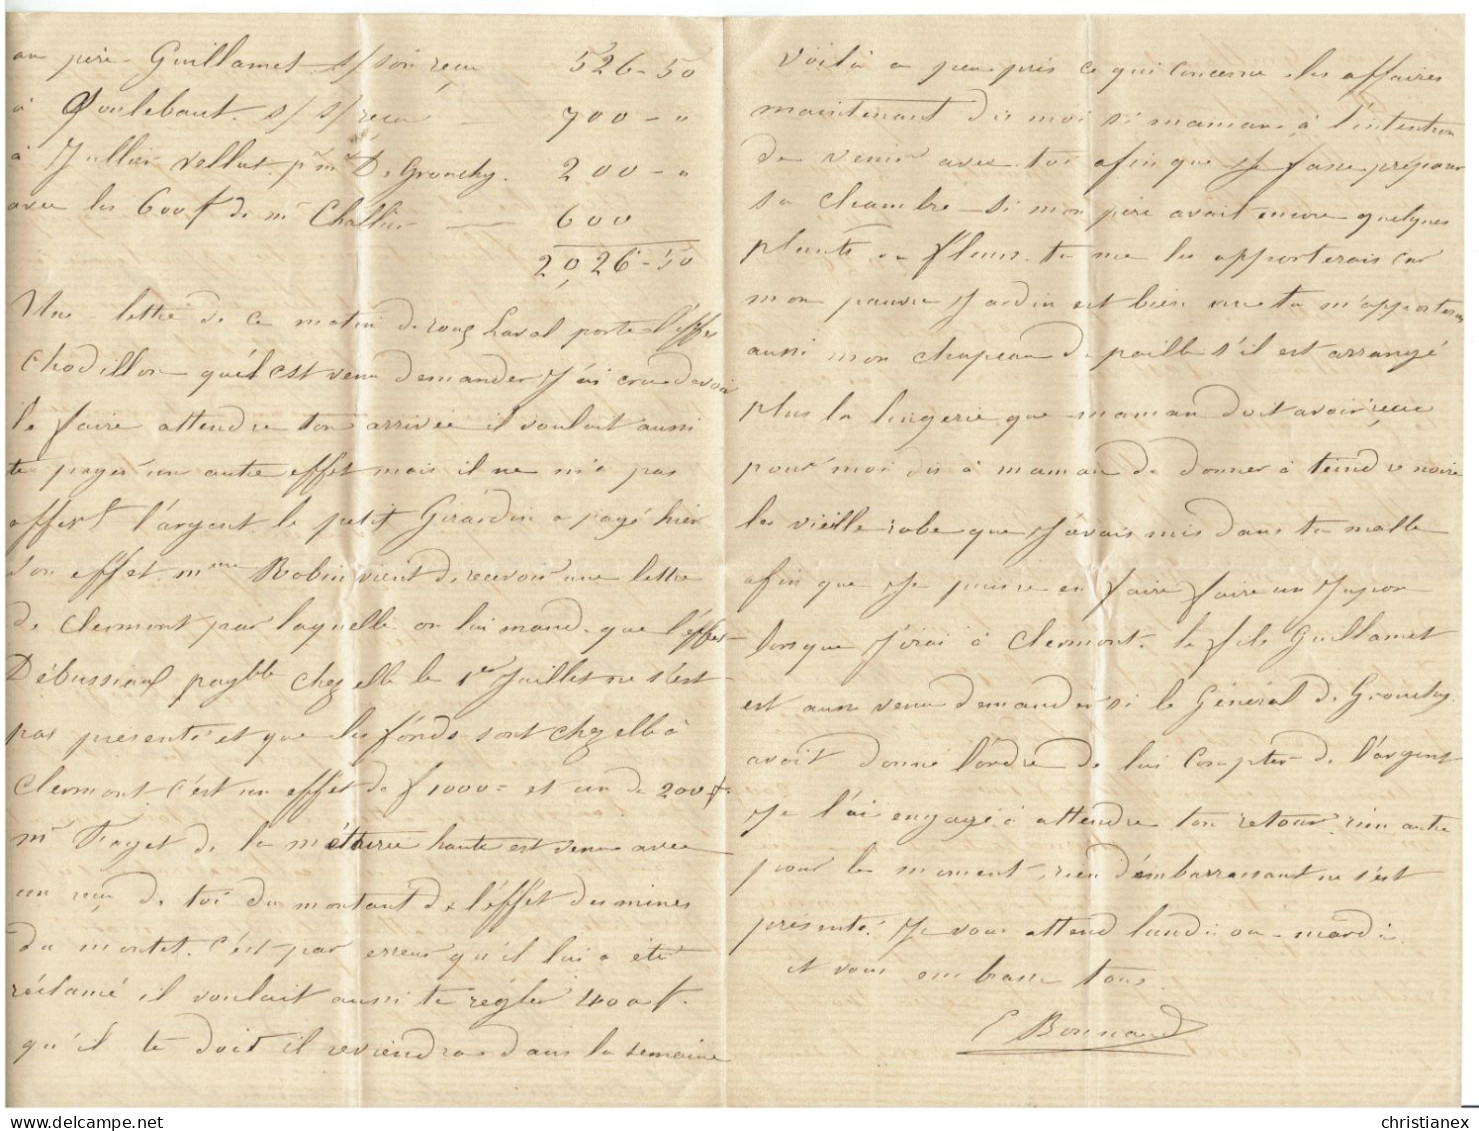 au père Guillamet s/ son reçu 526-50
à Goulebaut s/ s/ reçu — 700 - "
à Jullien Vellut pr mr De Grouchy. 200 - "
avec les 600 f de mr Challier — 600
2,026-50
Une lettre de ce matin de Laval porte l'effet
Chodillon qu'il est venu demander J'ai cru devoir
le faire attendre ton arrivée il voulait aussi
te payer un autre effet mais il ne m'a pas
offert l'argent le petit Girardin a payé hier
son effet. mme Robin vient de recevoir une lettre
de Clermont par laquelle on lui mande que l'effet
Débussieux payble chez elle le 1er Juillet ne s'est
pas présenté et que les fonds sont chez elle à
Clermont c'est un effet de f 1000 = et un de 200 f.
mr Finget de la métairie haute est venu avec
un reçu de toi du montant de l'effet des mines
du montet. c'est par erreur qu'il lui a été
réclamé il voulait aussi te régler 400 f.
qu'il te doit il reviendra dans la semaine
Voilà a peu près ce qui concerne les affaires
maintenant dis moi si maman à l'intention
de venir avec toi afin que Je fasse préparer
sa chambre - si mon père avait encore quelques
plants ou fleurs tu me les apporterais car
mon pauvre Jardin est bien nu tu m'apporteras
aussi mon chapeau de paille s'il est arrangé
plus la lingerie que maman doit avoir reçue
pour moi dis à maman de donner à teindre noire
la vieille robe que J'avais mis dans ta malle
afin que Je puisse en faire faire un Jupon
lorsque J'irai à Clermont. le fils Guillamet
est aussi venu demander si le Général de Grouchy
avait donné l'ordre de lui compter de l'argent
Je l'ai engagé à attendre ton retour. rien autre
pour le moment, rien d'embarrassant ne s'est
présenté. Je vous attend lundi ou mardi
et vous embrasse tous.
C Bonnaud
christianex